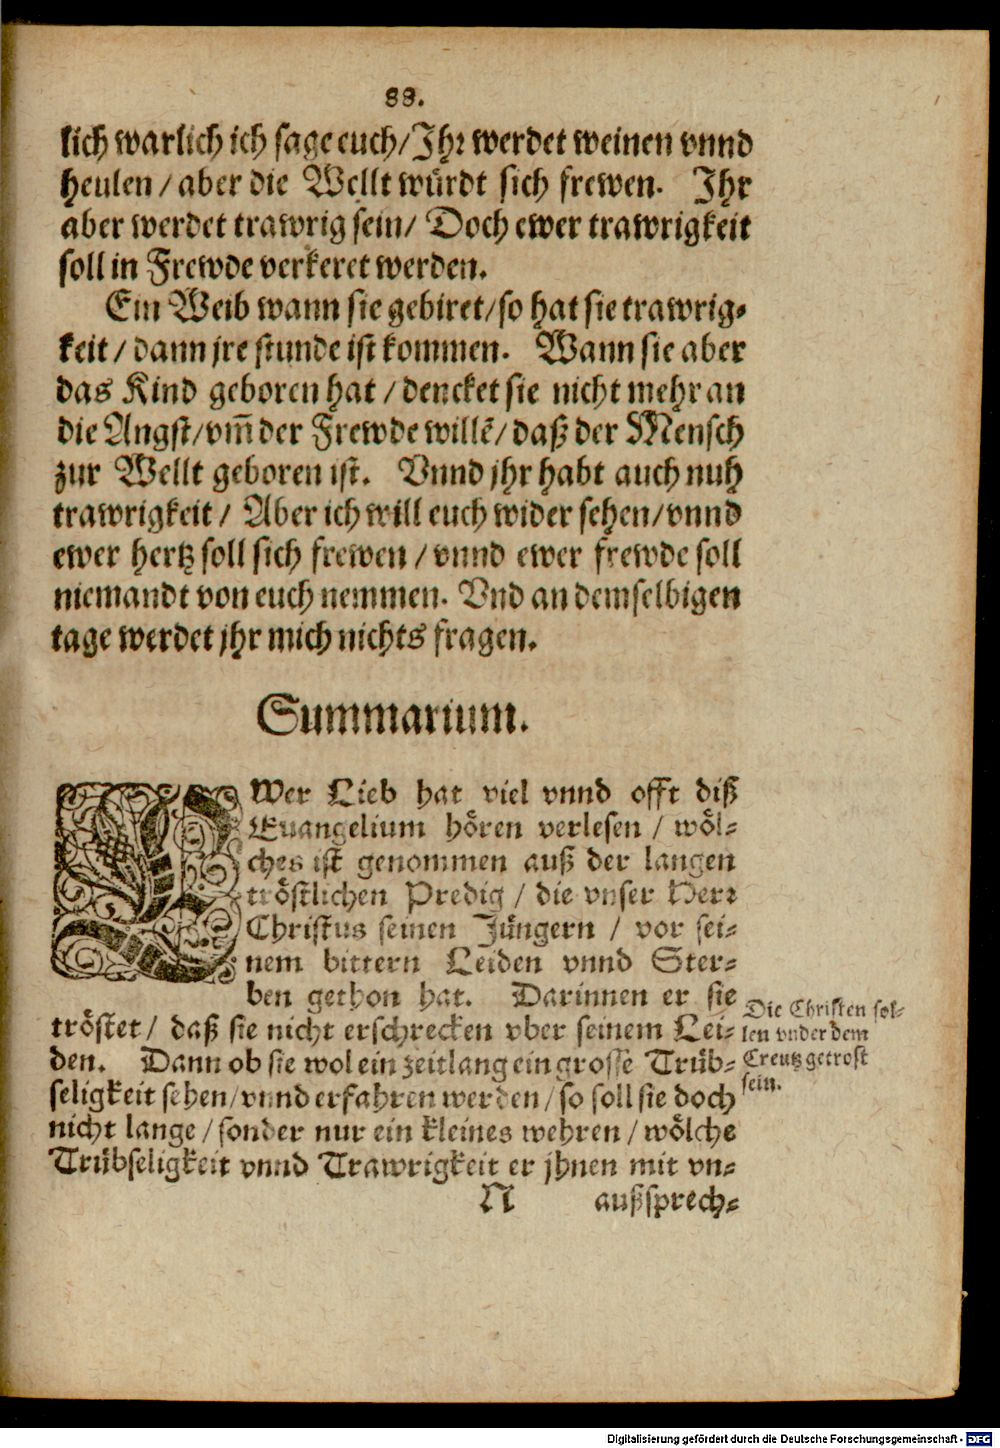 88.
lich warlich ich sage euch/Jhr werdet weinen vnnd
heulen/aber die Wellt würdt sich frewen. Jhr
aber werdet trawrig sein/ Doch ewer trawrigkeit
soll in Frewde verkeret werden.
Ein Weib wann sie gebiret/so hat sie trawrig-
keit/dann jre stunde ist kommen. Wann sie aber
das Kind geboren hat/dencket sie nicht mehr an
die Angst/vm̃ der Frewde willẽ/daß der Mensch
zur Wellt geboren ist. Vnnd jhr habt auch nuh
trawrigkeit/ Aber ich will euch wider sehen/vnnd
ewer hertz soll sich frewen/vnnd ewer frewde soll
niemandt von euch nemmen. Vnd an demselbigen
tage werdet jhr mich nichts fragen.
Summarium.
EWer Lieb hat viel vnnd offt diß
Euangelium hören verlesen/ wöl-
ches ist genommen auß der langen
tröstlichen Predig/ die vnser Herr
Christus seinen Jüngern/ vor sei-
nem bittern Leiden vnnd Ster-
ben gethon hat. Darinnen er sie
tröstet/ daß sie nicht erschrecken vber seinem Lei-
den. Dann ob sie wol ein zeitlang ein grosse Trüb-
seligkeit sehen/vnnd erfahren werden/so soll sie doch
nicht lange/sonder nur ein kleines wehren/wölche
Trübseligkeit vnnd Trawrigkeit er jhnen mit vn-
Die Christen sol-
len vnder dem
Creutz getrost
sein.
N außsprech-
Digitalisierung gefördert durch die Deutsche Forschungsgemeinschaft - DFG